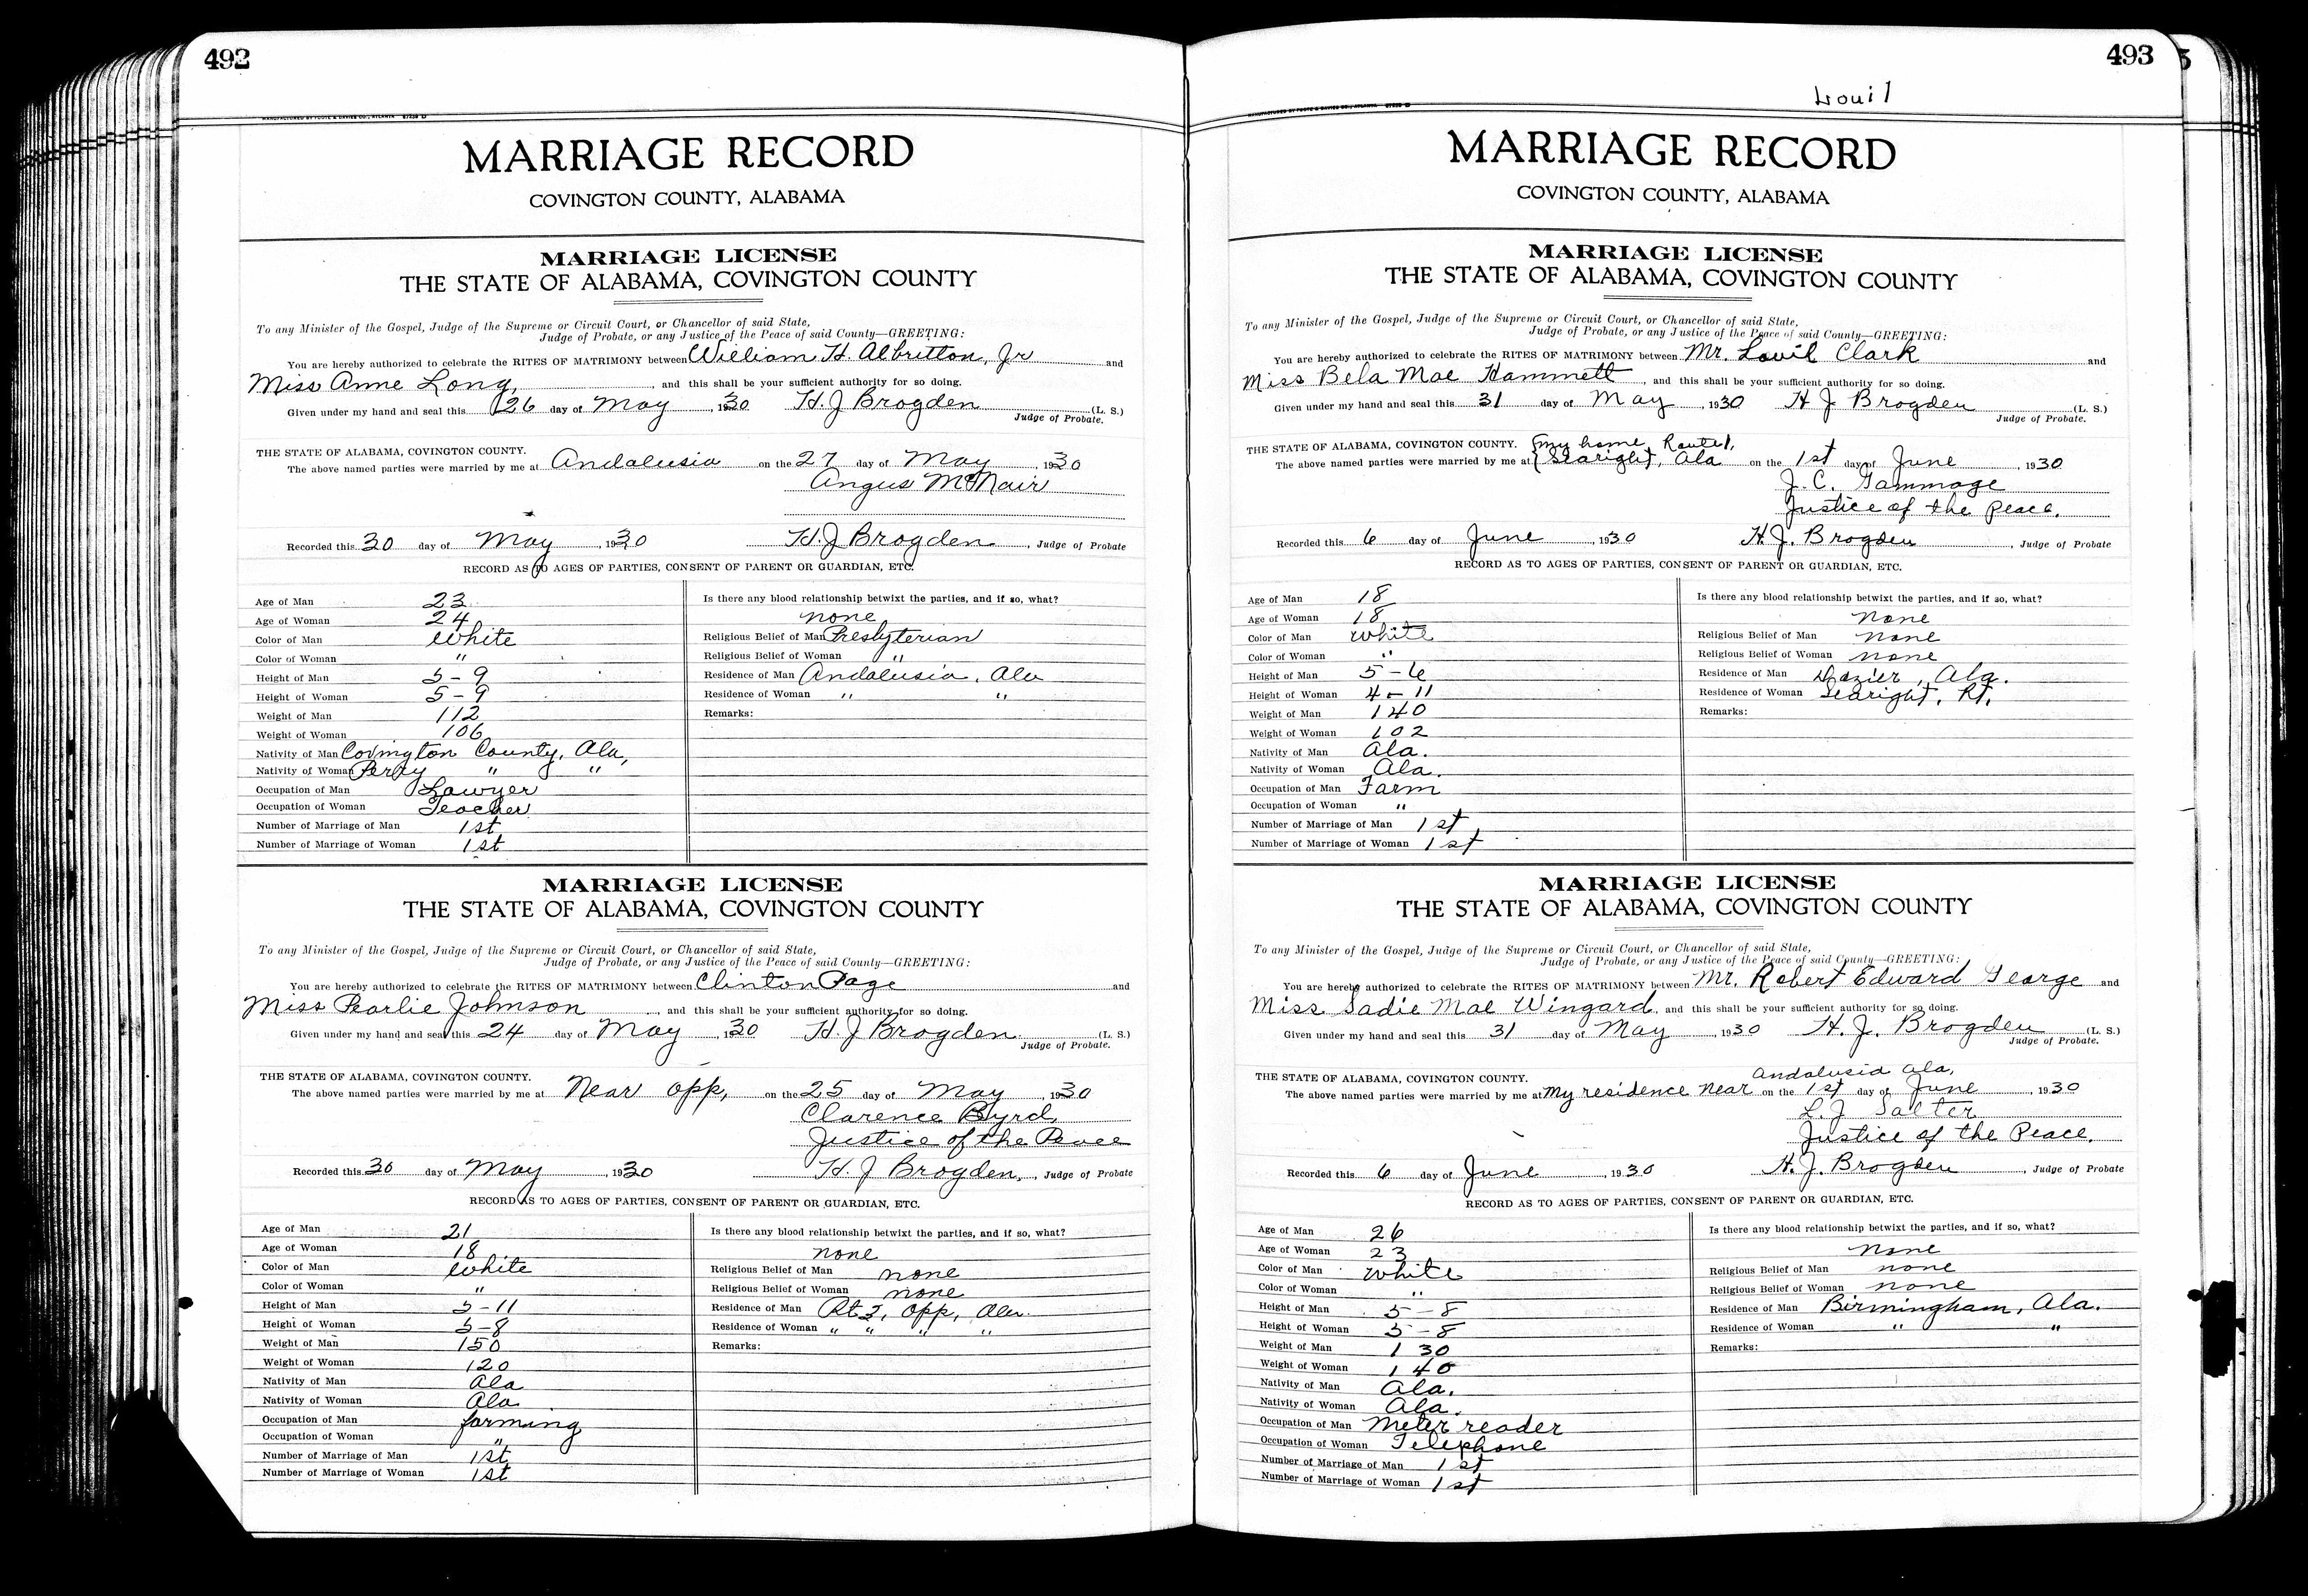 492
MANUFACTURED BY FOOTE & DAVIES CO., ATLANTA
MARRIAGE RECORD
COVINGTON COUNTY, ALABAMA
MARRIAGE LICENSE
THE STATE OF ALABAMA, COVINGTON COUNTY
To any Minister of the Gospel, Judge of the Supreme or Circuit Court, or Chancellor of said State,
Judge of Probate, or any Justice of the Peace of said County—GREETING:
You are hereby authorized to celebrate the RITES OF MATRIMONY between William H. Albritton, Jr and
Miss Anne Long, and this shall be your sufficient authority for so doing.
Given under my hand and seal this 26 day of May, 1930 H. J Brogden (L. S.)
Judge of Probate.
THE STATE OF ALABAMA, COVINGTON COUNTY.
The above named parties were married by me at Andalusia on the 27 day of May, 1930
Angus McNair
Recorded this 30 day of May, 1930 H. J Brogden, Judge of Probate
RECORD AS TO AGES OF PARTIES, CONSENT OF PARENT OR GUARDIAN, ETC.
Age of Man 23 Is there any blood relationship betwixt the parties, and if so, what?
Age of Woman 24 none
Color of Man White Religious Belief of Man Presbyterian
Color of Woman " Religious Belief of Woman "
Height of Man 5-9 Residence of Man Andalusia, Ala
Height of Woman 5-9 Residence of Woman " "
Weight of Man 112 Remarks:
Weight of Woman 106
Nativity of Man Covington County, Ala,
Nativity of Woman Perry " "
Occupation of Man Lawyer
Occupation of Woman Teacher
Number of Marriage of Man 1st
Number of Marriage of Woman 1st
MARRIAGE LICENSE
THE STATE OF ALABAMA, COVINGTON COUNTY
To any Minister of the Gospel, Judge of the Supreme or Circuit Court, or Chancellor of said State,
Judge of Probate, or any Justice of the Peace of said County—GREETING:
You are hereby authorized to celebrate the RITES OF MATRIMONY between Clinton Page and
Miss Pearlie Johnson, and this shall be your sufficient authority for so doing.
Given under my hand and seal this 24 day of May, 1930 H. J Brogden (L. S.)
Judge of Probate.
THE STATE OF ALABAMA, COVINGTON COUNTY.
The above named parties were married by me at Near Opp, on the 25 day of May, 1930
Clarence Byrd,
Justice of the Peace
Recorded this 30 day of May, 1930 H. J Brogden, Judge of Probate
RECORD AS TO AGES OF PARTIES, CONSENT OF PARENT OR GUARDIAN, ETC.
Age of Man 21 Is there any blood relationship betwixt the parties, and if so, what?
Age of Woman 18 none
Color of Man White Religious Belief of Man none
Color of Woman " Religious Belief of Woman none
Height of Man 5-11 Residence of Man Rt 2, Opp, Ala.
Height of Woman 5-8 Residence of Woman " " " "
Weight of Man 150 Remarks:
Weight of Woman 120
Nativity of Man Ala
Nativity of Woman Ala
Occupation of Man farming
Occupation of Woman "
Number of Marriage of Man 1st
Number of Marriage of Woman 1st
493
Louil
MANUFACTURED BY FOOTE & DAVIES CO., ATLANTA
MARRIAGE RECORD
COVINGTON COUNTY, ALABAMA
MARRIAGE LICENSE
THE STATE OF ALABAMA, COVINGTON COUNTY
To any Minister of the Gospel, Judge of the Supreme or Circuit Court, or Chancellor of said State,
Judge of Probate, or any Justice of the Peace of said County—GREETING:
You are hereby authorized to celebrate the RITES OF MATRIMONY between Mr. Louil Clark and
Miss Bela Mae Hammett, and this shall be your sufficient authority for so doing.
Given under my hand and seal this 31 day of May, 1930 H J Brogden (L. S.)
Judge of Probate.
THE STATE OF ALABAMA, COVINGTON COUNTY. {My home, Route 1,
The above named parties were married by me at {Searight, Ala on the 1st day of June, 1930
J. C. Gammage
Justice of the Peace.
Recorded this 6 day of June, 1930 H. J. Brogden, Judge of Probate
RECORD AS TO AGES OF PARTIES, CONSENT OF PARENT OR GUARDIAN, ETC.
Age of Man 18 Is there any blood relationship betwixt the parties, and if so, what?
Age of Woman 18 none
Color of Man White Religious Belief of Man none
Color of Woman " Religious Belief of Woman none
Height of Man 5-6 Residence of Man Dozier, Ala.
Height of Woman 4-11 Residence of Woman Searight, Rt,
Weight of Man 140 Remarks:
Weight of Woman 102
Nativity of Man Ala.
Nativity of Woman Ala.
Occupation of Man Farm
Occupation of Woman "
Number of Marriage of Man 1st
Number of Marriage of Woman 1st
MARRIAGE LICENSE
THE STATE OF ALABAMA, COVINGTON COUNTY
To any Minister of the Gospel, Judge of the Supreme or Circuit Court, or Chancellor of said State,
Judge of Probate, or any Justice of the Peace of said County—GREETING:
You are hereby authorized to celebrate the RITES OF MATRIMONY between Mr. Robert Edward George and
Miss Sadie Mae Wingard, and this shall be your sufficient authority for so doing.
Given under my hand and seal this 31 day of May, 1930 H. J. Brogden (L. S.)
Judge of Probate.
THE STATE OF ALABAMA, COVINGTON COUNTY. Andalusia Ala,
The above named parties were married by me at My residence Near on the 1st day of June, 1930
L. J Salter
Justice of the Peace.
Recorded this 6 day of June, 1930 H. J. Brogden, Judge of Probate
RECORD AS TO AGES OF PARTIES, CONSENT OF PARENT OR GUARDIAN, ETC.
Age of Man 26 Is there any blood relationship betwixt the parties, and if so, what?
Age of Woman 23 None
Color of Man White Religious Belief of Man none
Color of Woman " Religious Belief of Woman none
Height of Man 5-8 Residence of Man Birmingham, Ala.
Height of Woman 5-8 Residence of Woman " "
Weight of Man 130 Remarks:
Weight of Woman 140
Nativity of Man Ala.
Nativity of Woman Ala.
Occupation of Man Meter reader
Occupation of Woman Telephone
Number of Marriage of Man 1st
Number of Marriage of Woman 1st